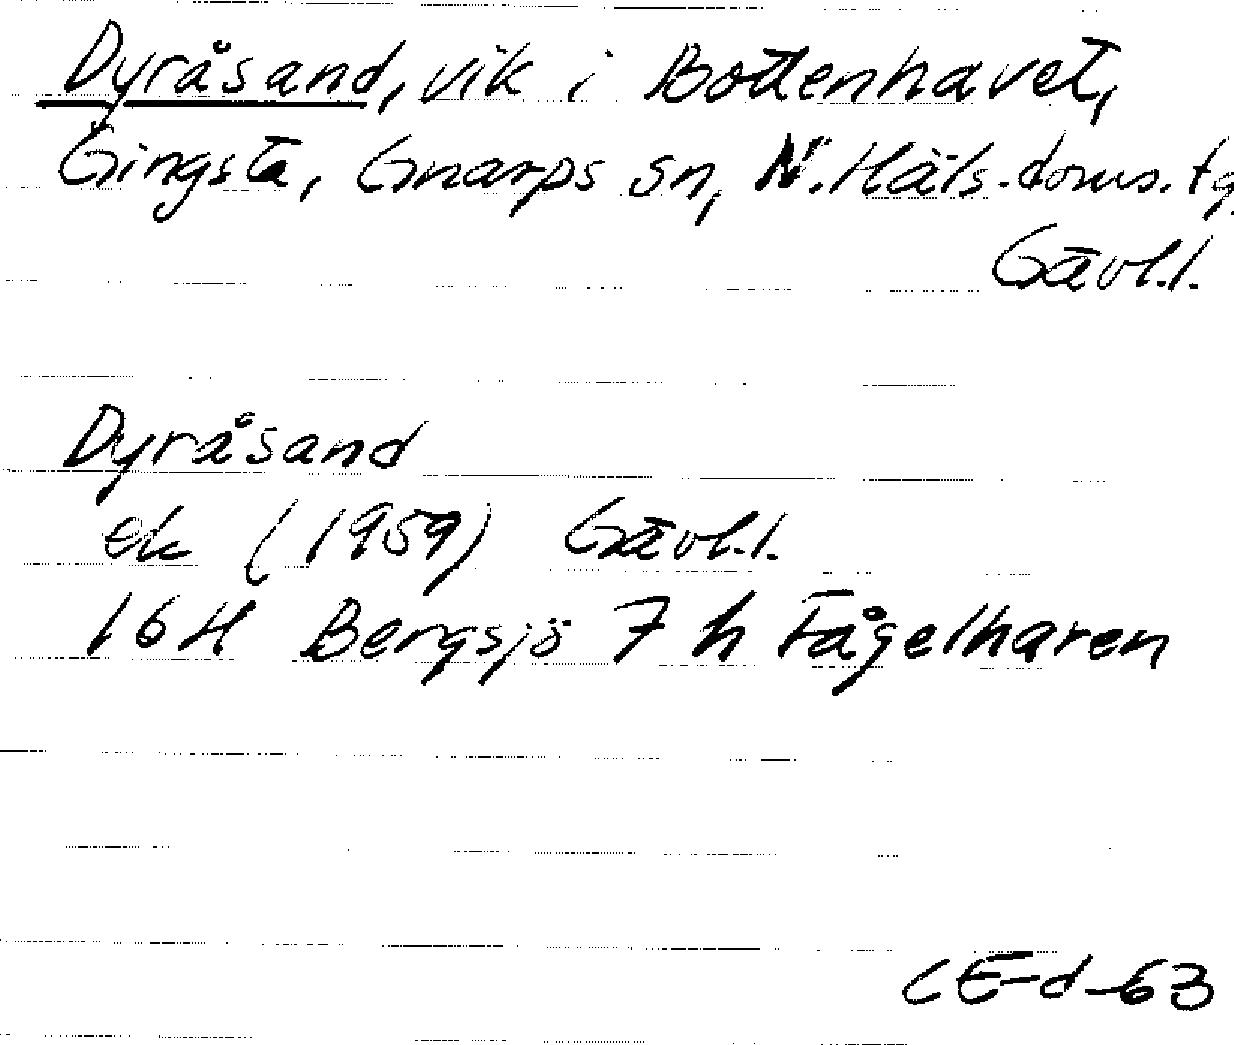 Dyråsand, vik i Bottenhavet,
Gingsta, Gnarps sn, N. Häls. doms. tg,
Gävl.l.
Dyråsand
ek (1959) Gävl.l.
16H Bergsjö 7 h Fågelharen
CE-d-63